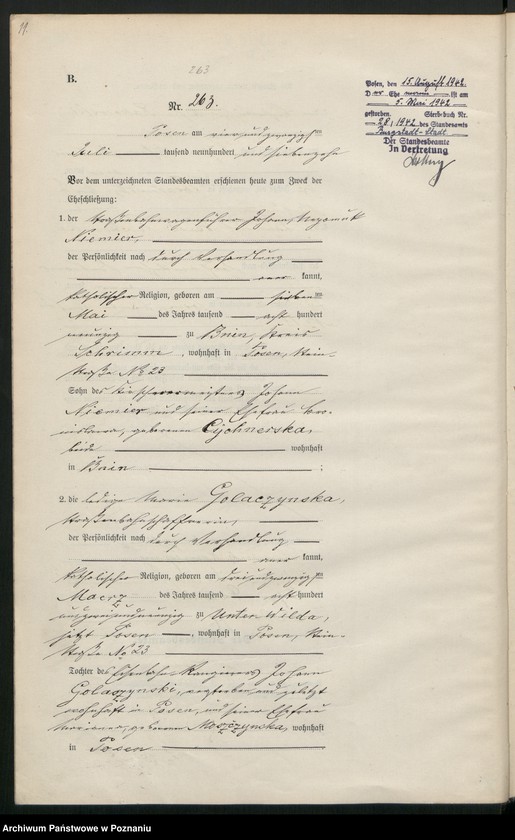 11.
263
B.
Nr. 263.
Posen am vierundzwanzigsten
Juli tausend neunhundert und siebenzehn
Vor dem unterzeichneten Standesbeamten erschienen heute zum Zweck der
Eheschließung:
1. der Straßenbahnwagenführer Johann Nepomuk
Niemier,
der Persönlichkeit nach durch Verhandlung
aner kannt,
katholischer Religion, geboren am sieben ten
Mai des Jahres tausend acht hundert
neunzig zu Bnin, Kreis
Schrimm, wohnhaft in Posen,
straße No 23
Sohn des Johann
Niemier und seiner Ehefrau
geborenen Cichnerska,
beide wohnhaft
in Bnin ;
2. die ledige Marie Golaczynska,
Straßenbahnschaffnerin,
der Persönlichkeit nach durch Verhandlung
aner kannt,
katholischer Religion, geboren am dreiundzwanzigsten
Maerz des Jahres tausend acht hundert
zu Unter Wilda,
jetzt Posen, wohnhaft in Posen,
straße No 23
Tochter des Eisenbahn Rangierers Johann
Golaszynski, verstorben und zuletzt
wohnhaft in Posen, und seiner Ehefrau
Marianna, geborenen wohnhaft
in Posen
Posen, den 15. August 1942
D Ehe ist am
5. Mai 1942
gestorben Sterbebuch Nr.
28/1942 des Standesamts
Burgstadt-Stadt
Der Standesbeamte
In Vertretung
Archiwum Państwowe w Poznaniu